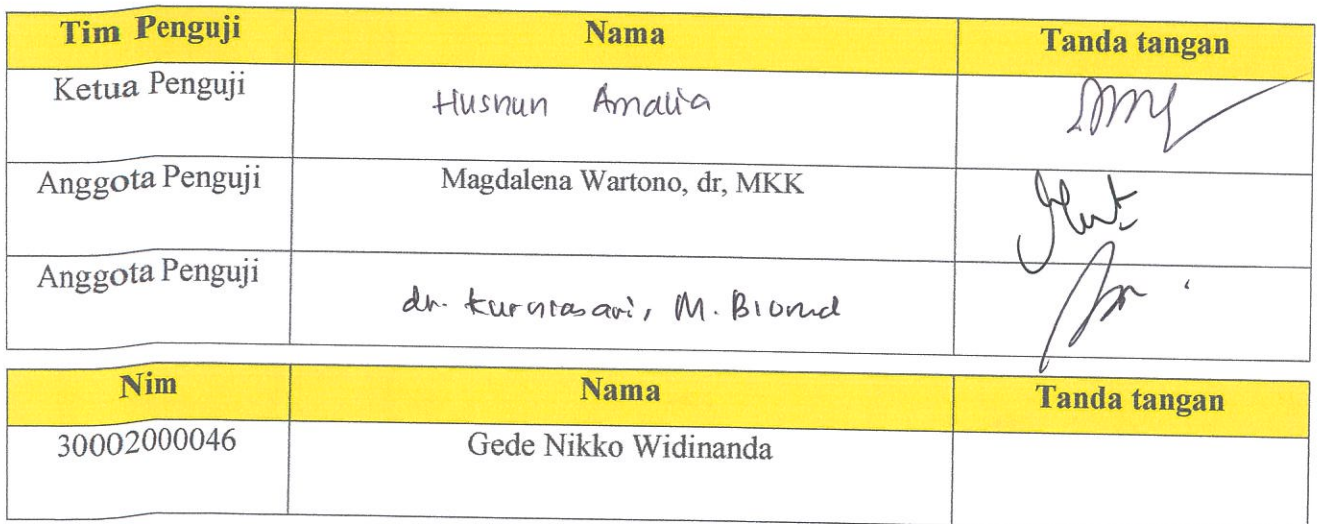 Tim Penguji Nama Tanda tangan
Ketua Penguji Husnun Amalia
Anggota Penguji Magdalena Wartono, dr, MKK
Anggota Penguji dr. Kurniasari, M. Biomed
Nim Nama Tanda tangan
30002000046 Gede Nikko Widinanda